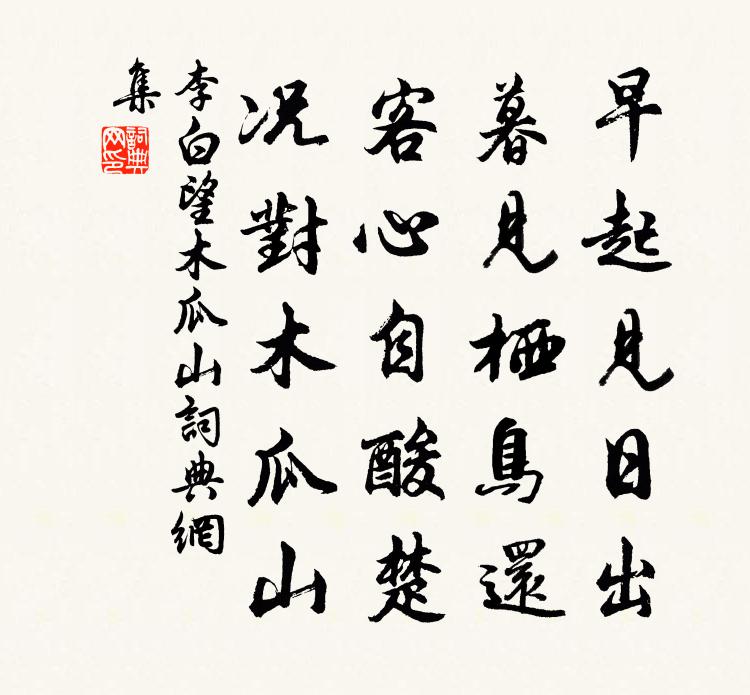 早起見日出
暮見栖鳥還
客心自酸楚
况對木瓜山
李白望木瓜山詞典網
集
詞典網印